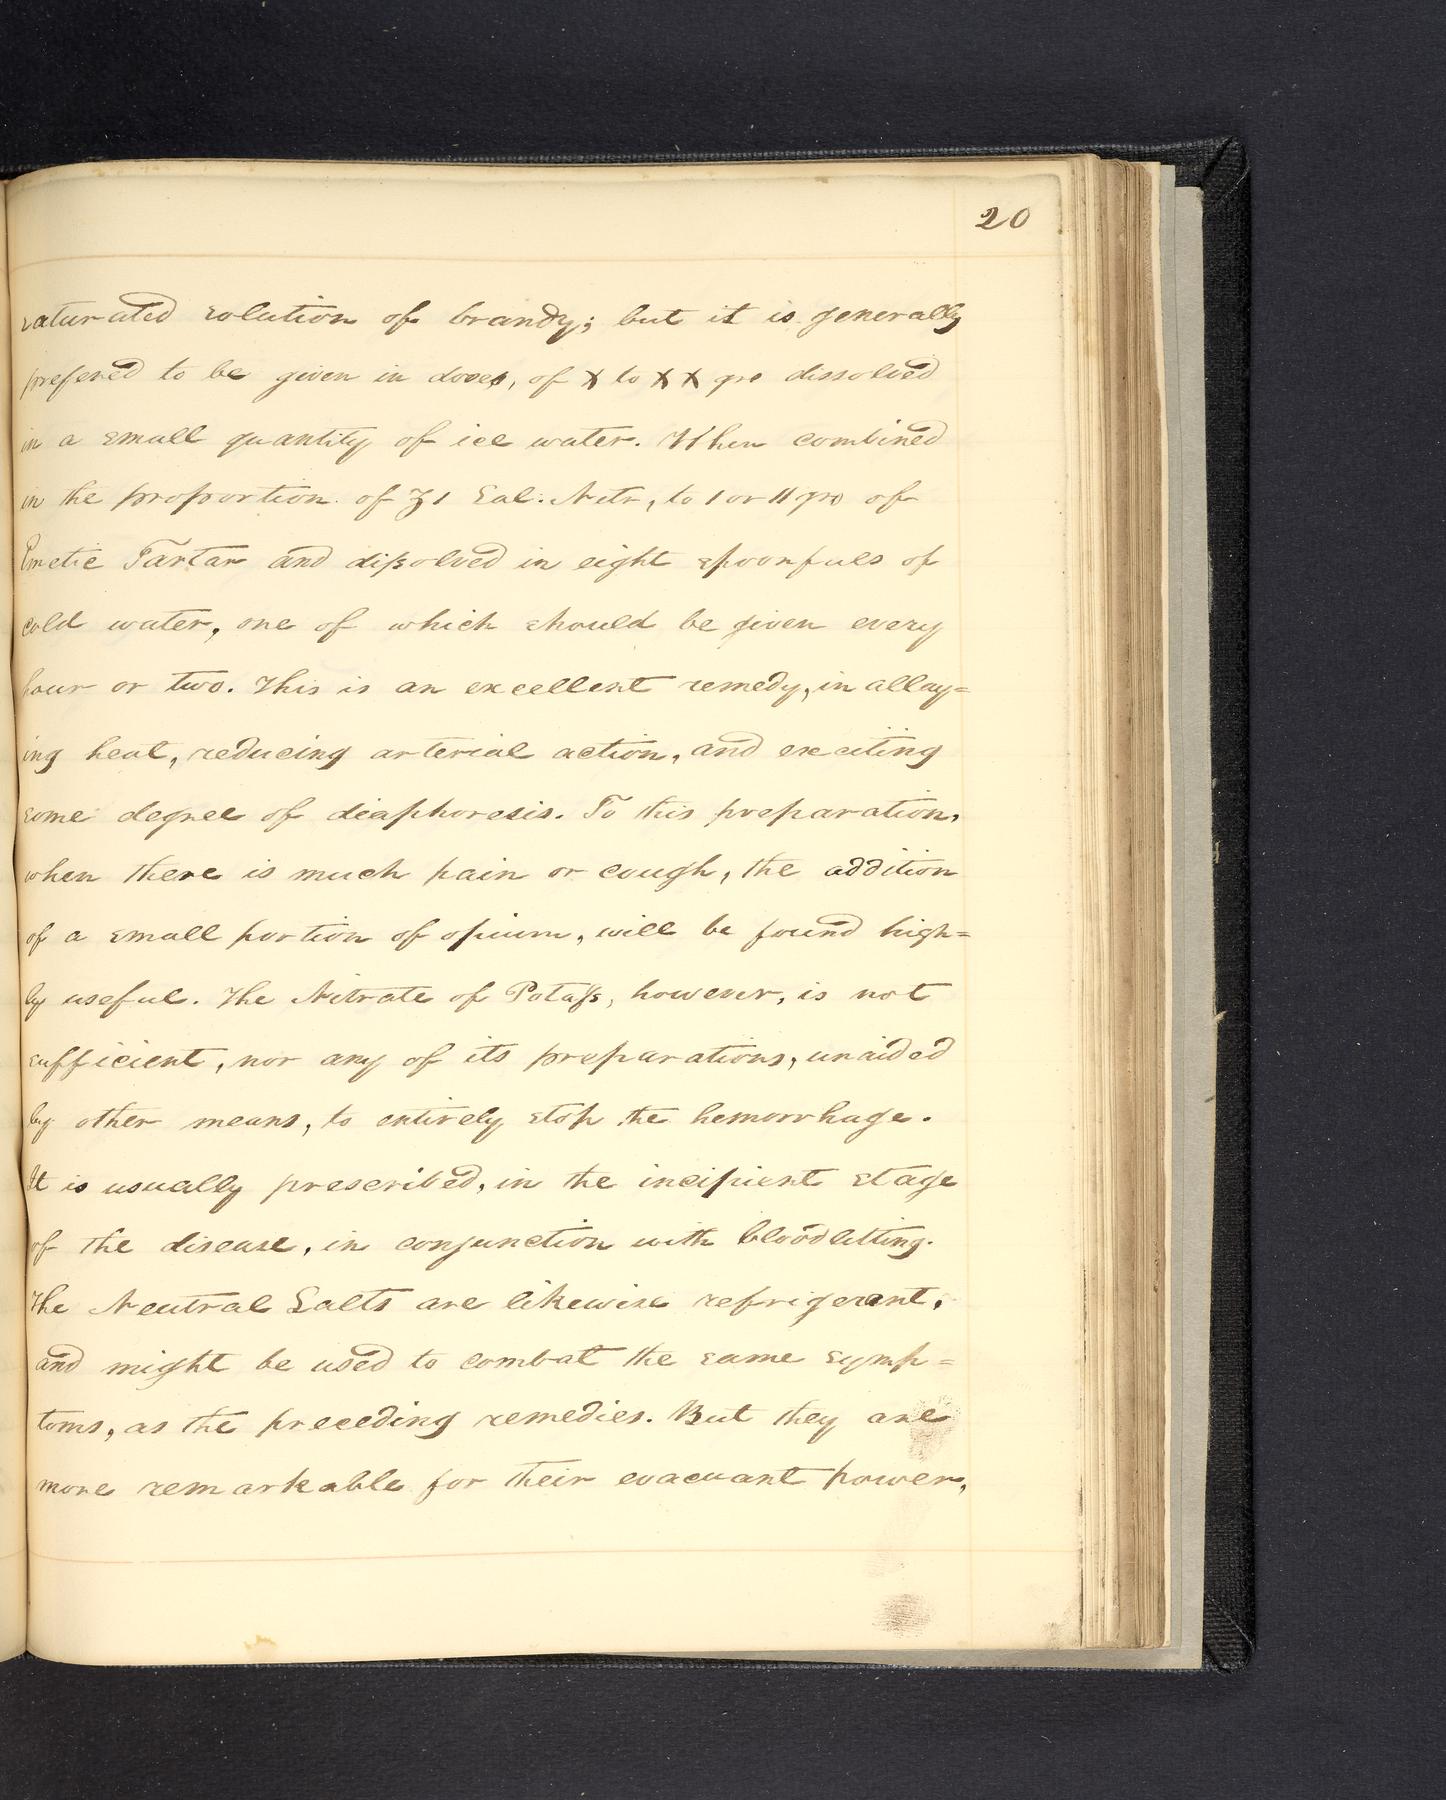 20
saturated solution of brandy; but it is generally
prefered to be given in doses, of X to XX grs dissolved
in a small quantity of ice water. When combined
in the proportion of ʒ1 Sal: Nitr, to 1 or 11 grs of
Emetic Tartar and dissolved in eight spoonfuls of
cold water, one of which should be given every
hour or two. This is an excellent remedy, in allay=
ing heat, reducing arterial action, and exciting
some degree of diaphoresis. To this preparation,
when there is much pain or cough, the addition
of a small portion of opium, will be found high=
ly useful. The Nitrate of Potass, however, is not
sufficient, nor any of its preparations, unaided
by other means, to entirely stop the hemorrhage.
It is usually prescribed, in the incipient stage
of the disease, in conjunction with bloodletting.
The Neutral Salts are likewise refrigerant,
and might be used to combat the same symp=
toms, as the preceding remedies. But they are
more remarkable for their evacuant power,